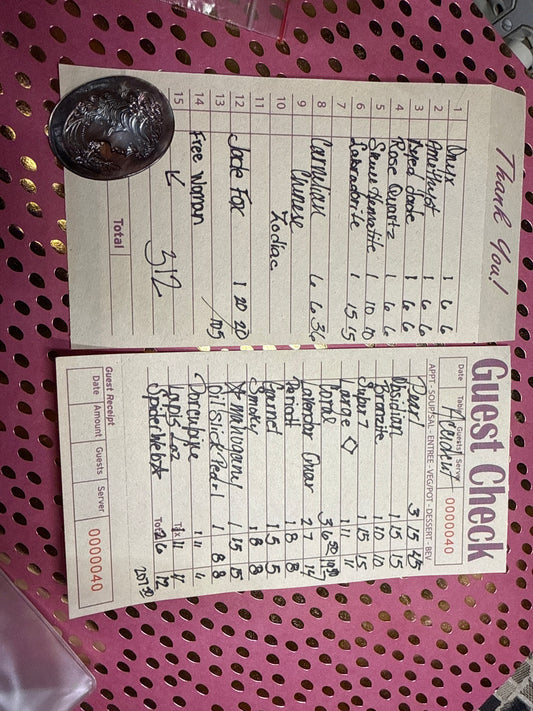 Thank You!
1 Onyx 1 6 6
2 Amethyst 1 6 6
3 Dyed Jade 1 6 6
4 Rose Quartz 1 6 6
5 Hematite 1 10 10
6 Labradorite 1 15 15
7
8 Carnelian 6 6 36
9 Chinese
10 Zodiac
11
12 Jade Fox 1 20 20
13 105
14 Free Woman
15 312
Total
Guest Check
Date Table Guests Server 0000040
APPT - SOUP/SAL - ENTREE - VEG/POT - DESSERT - BEV
Pearl 3 15 45
Obsidian 1 15 15
Bronzite 1 10 10
Super 7 1 15 15
Large ◇ 1 11 11
Coral 3
Lavender 2 7 14
1 8 8
Garnet 1 5 5
Smoky 1 8 8
1 15 15
Oil Slick Pearl 1 8 8
Porcupine 1 11 11
Tax
Lapis 1 11 11
Spiderweb 2 6 12
Total 207.50
Guest Receipt
Date Amount Guests Server 0000040